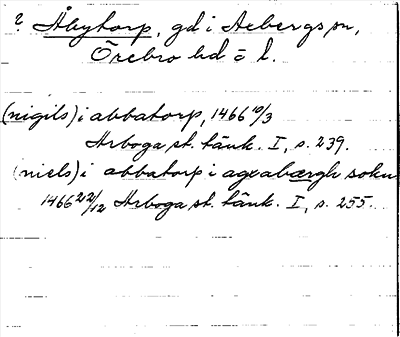 ? Åbytorp, gd i Axbergs sn,
Örebro hd o l.
(nigils) i abbatorp, 1466 10/3
Arboga st. tänk. I, s. 239.
(niels) i abbatorp i axabærgh sokn
1466 22/12 Arboga st. tänk. I, s. 255.